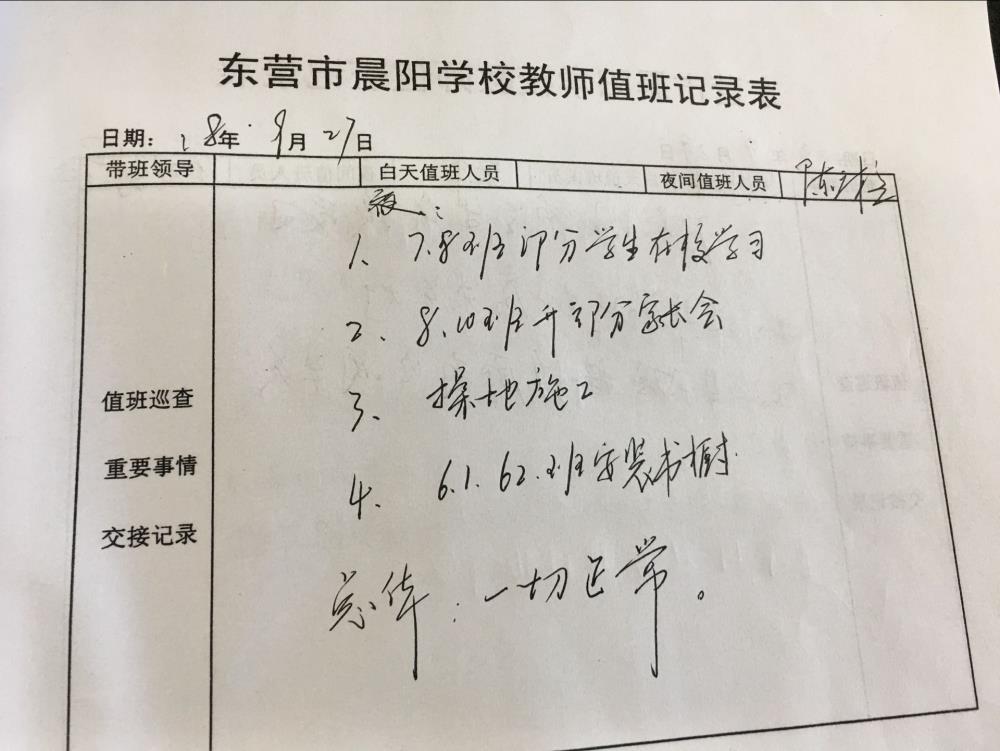 东营市晨阳学校教师值班记录表
日期：18年9月27日
带班领导 白天值班人员 夜间值班人员 陈
夜：
1、7.8班部分学生在校学习
2、8.10班开部分家长会
3、操场施工
值班巡查
重要事情
4、6.1.6.2.班安装书橱.
交接记录
总体：一切正常。